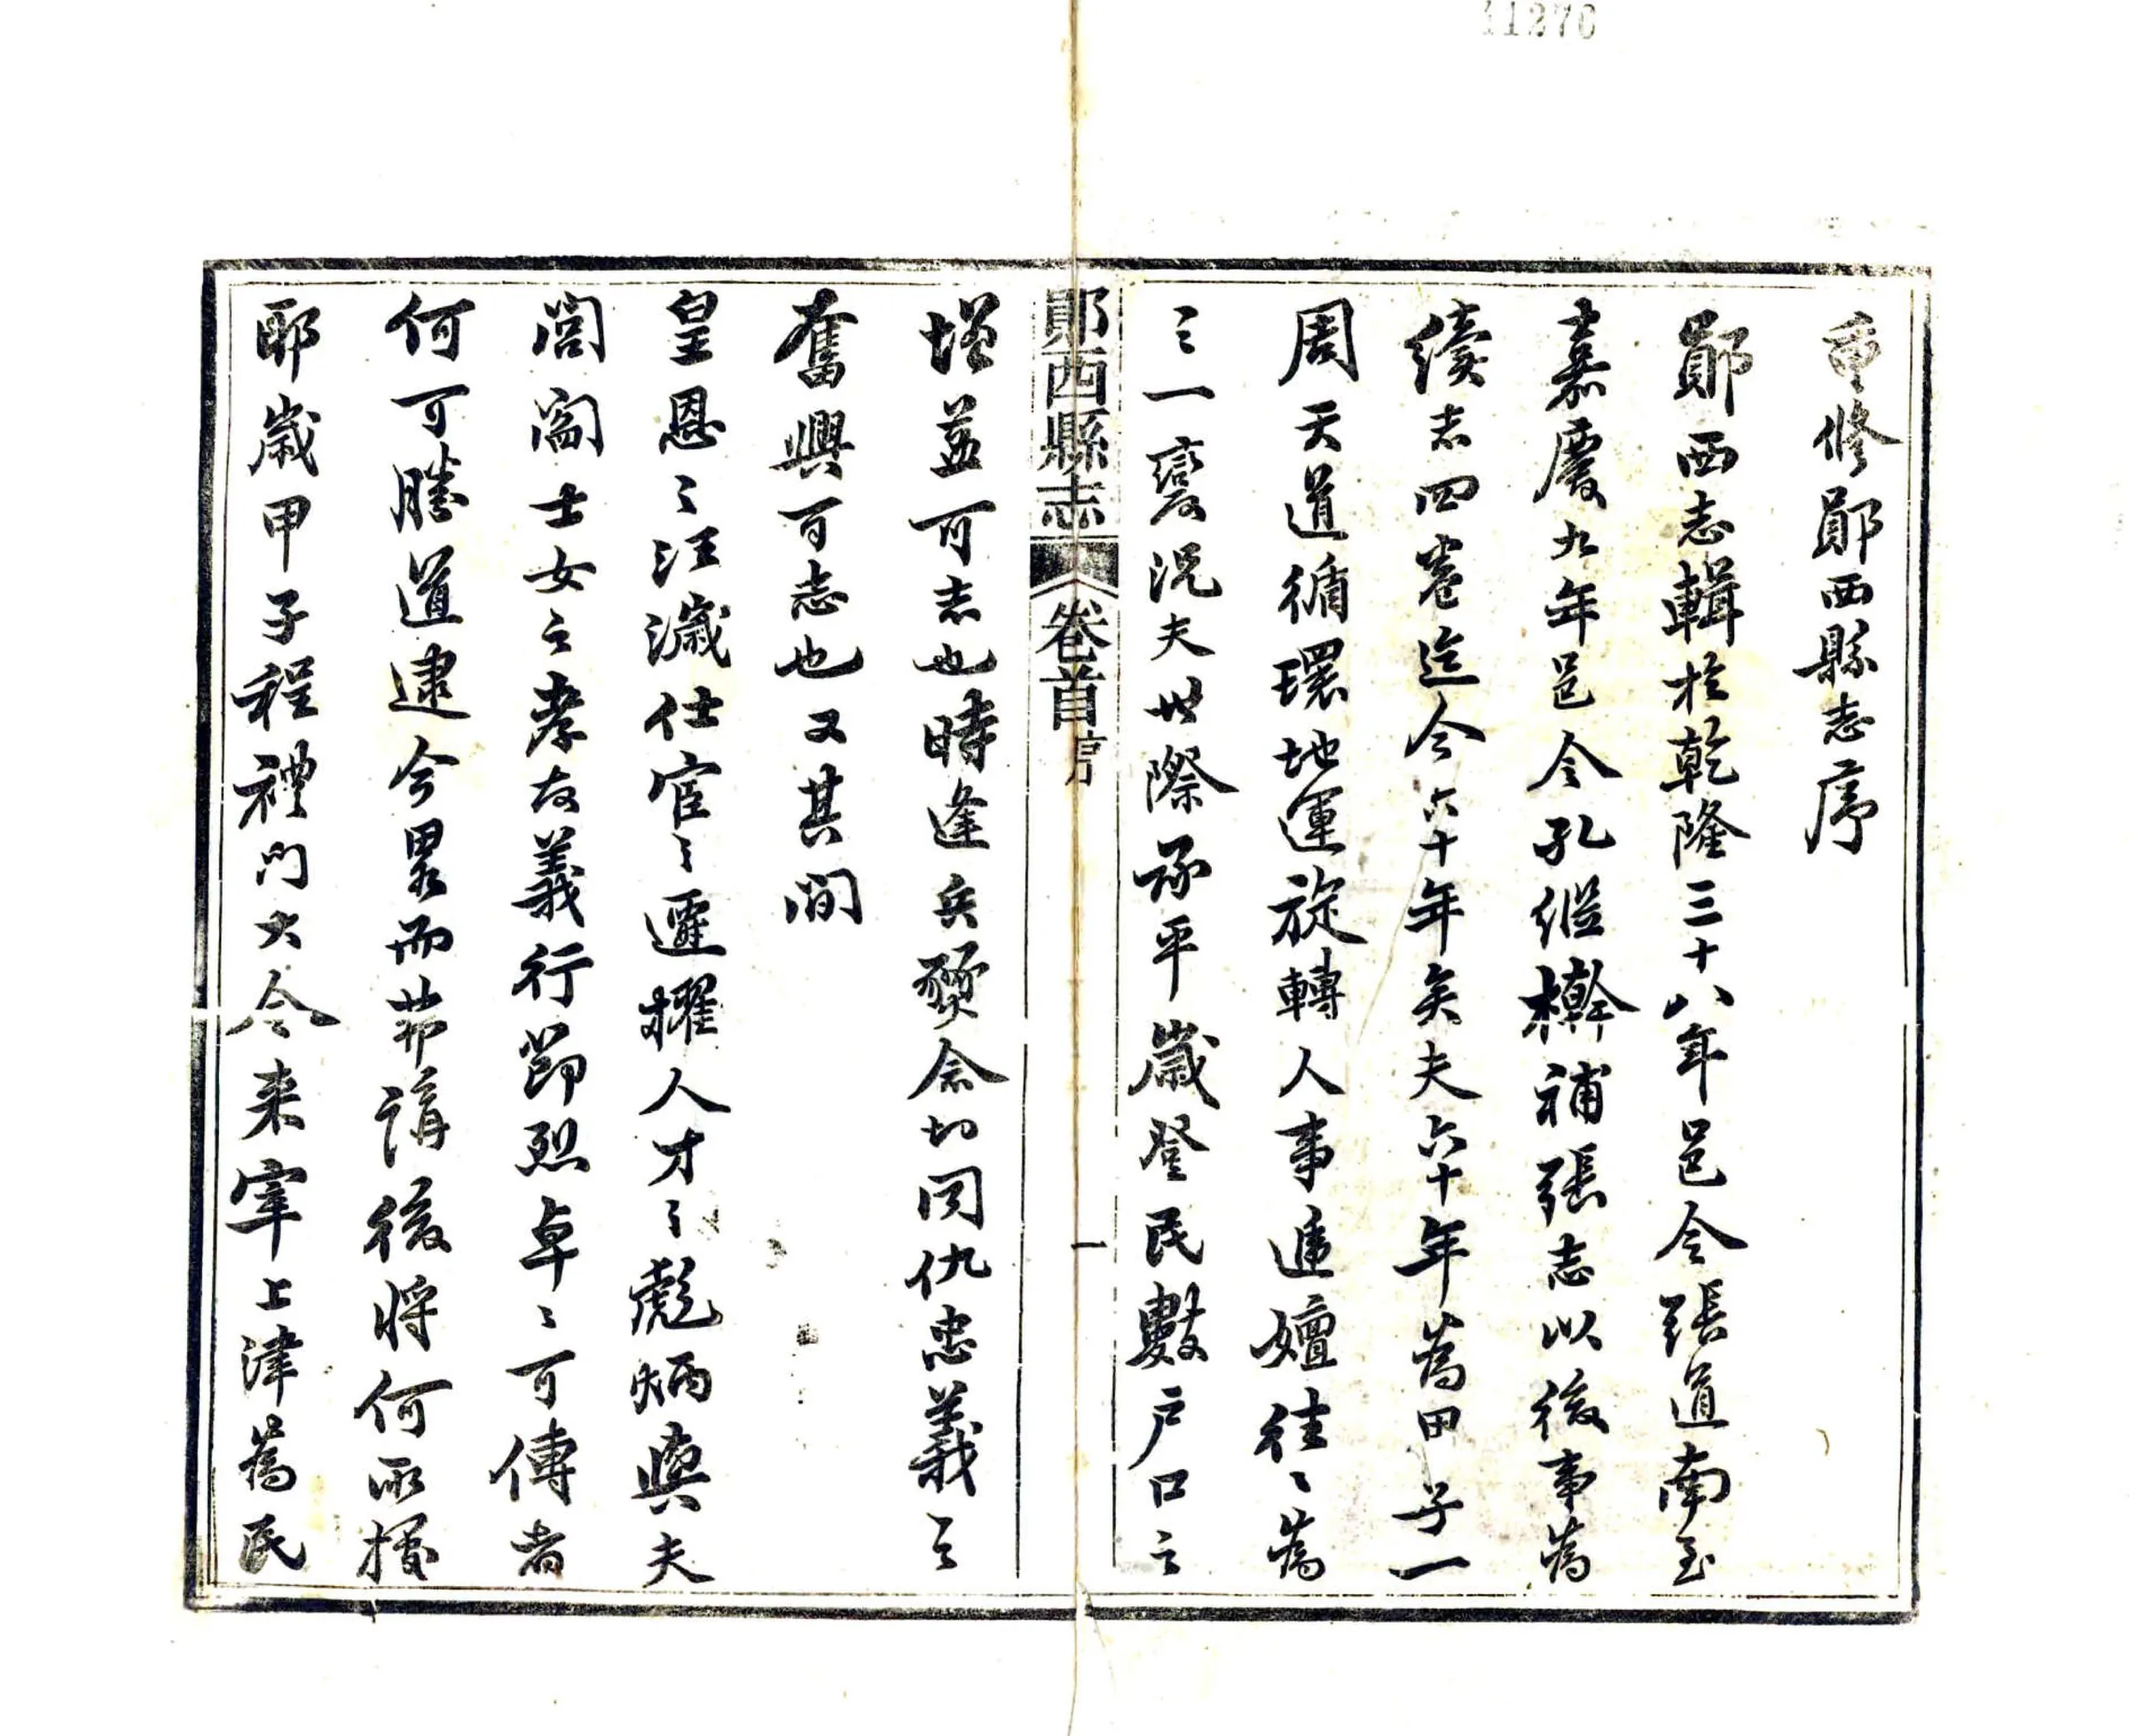 11276
重修鄖西縣志序
鄖西志輯於乾隆三十八年邑令張道南至
嘉慶九年邑令孔繼檊補張志以後事為
續志四卷迄今六十年矣夫六十年為甲子一
周天道循環地運旋轉人事遞嬗往〻為
之一變況夫世際承平歲登民數戶口之
鄖西縣志
卷首序
一
增益可志也時逢兵燹念切同仇忠義之
奮興可志也又其間
皇恩〻汪濊仕宦〻遷擢人才〻彪炳與夫
閭閻士女之孝友義行節烈卓〻可傳者
何可勝道逮今畧而弗講後將何所據
耶歲甲子程禮門大令来宰上津為民